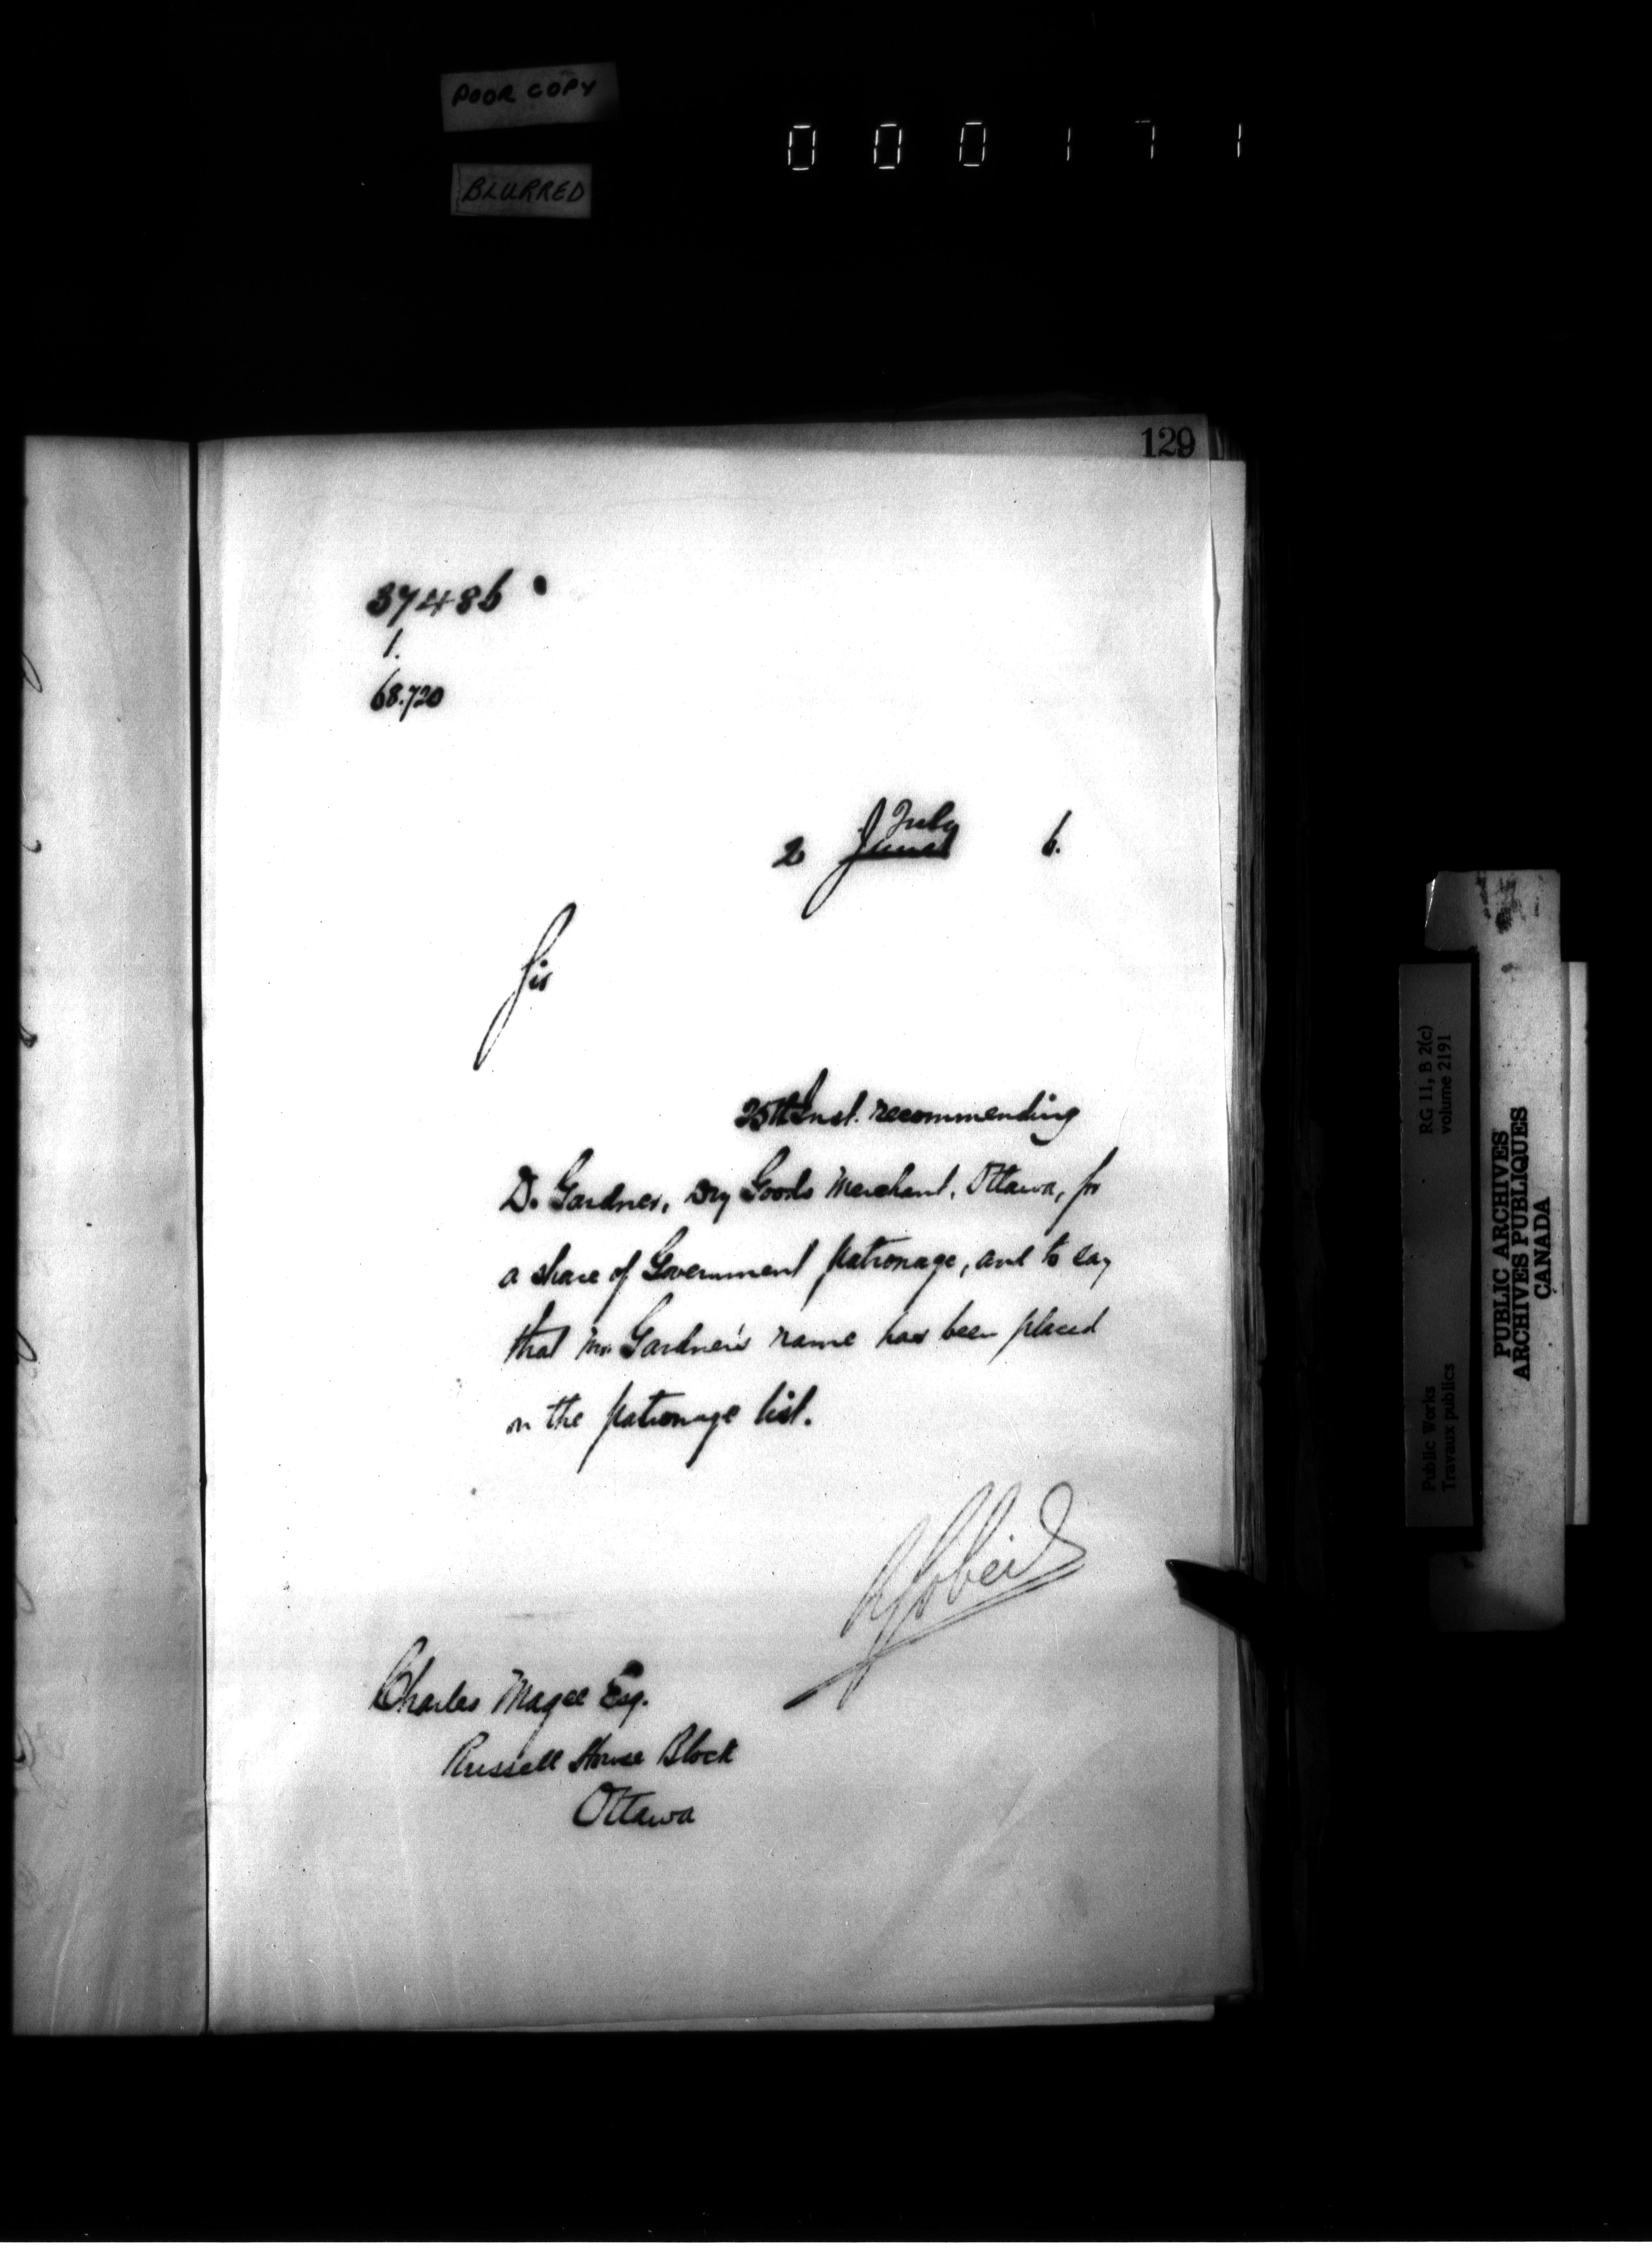 POOR COPY
000171
BLURRED
129
37486
1.
68.720
July
2 June 6.
Sir
25th Inst. recommending
D. Gardner, Dry Goods Merchant, Ottawa, for
a share of Government patronage, and to say
that Mr. Gardner's name has been placed
on the patronage list.
Charles Magee Esq.
Russell House Block
Ottawa
RG 11, B 2(c)
volume 2191
Public Works
Travaux publics
PUBLIC ARCHIVES
ARCHIVES PUBLIQUES
CANADA